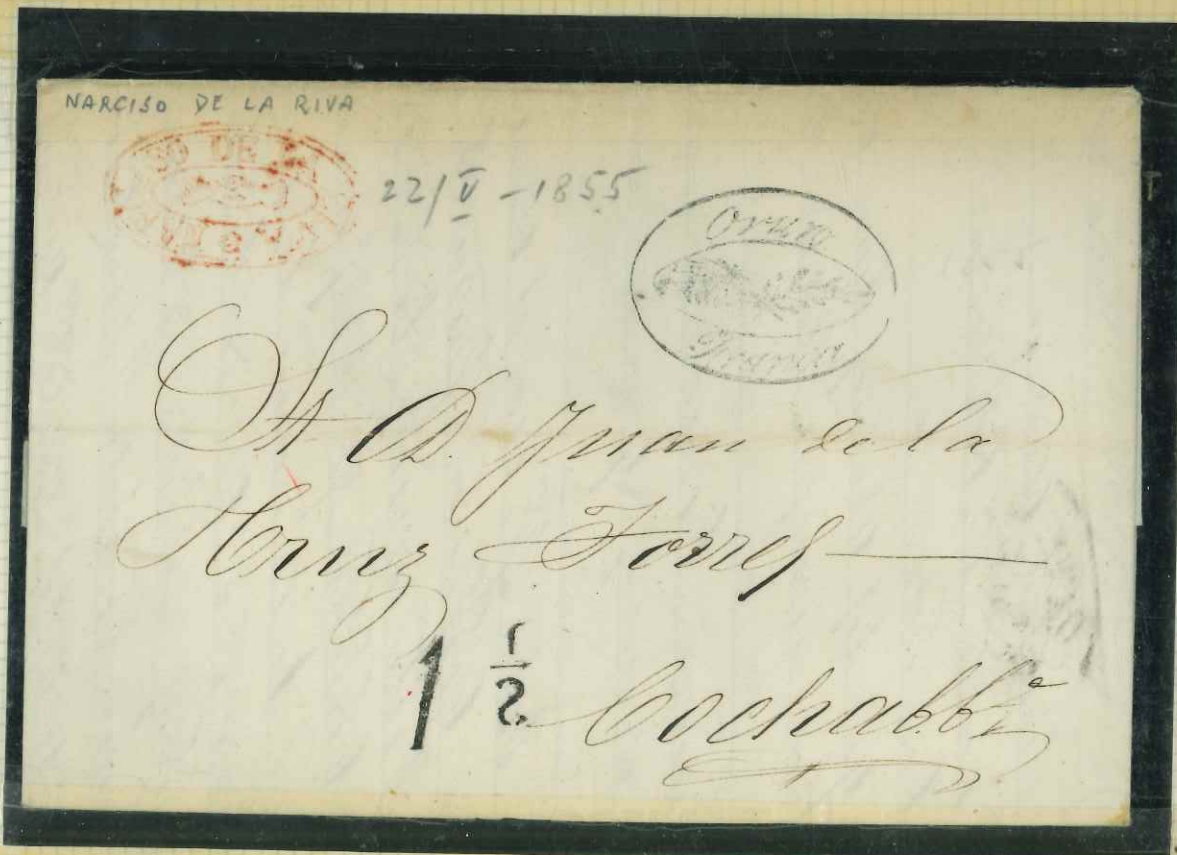 NARCISO DE LA RIVA
NARCISO DE LA RIVA
22/V-1855
Oruro
Franca
Sr D. Juan de la
Cruz Torres
1 1/2
Cochabba